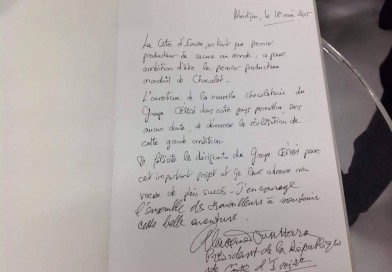 Abidjan, le 18 mai 2015
La Côte d'Ivoire, en tant que premier
producteur de cacao au monde, a pour
ambition d'être le premier producteur
mondial de Chocolat.
L'ouverture, de la nouvelle chocolaterie du
Groupe CÉMOI dans notre pays permettra, sans
aucun doute, de démarrer la réalisation de
cette grande ambition.
Je félicite les dirigeants du Groupe CÉMOI pour
cet important projet et je leur adresse mes
vœux de plein succès. J'encourage
l'ensemble des travailleurs à
cette belle aventure.
Alassane Ouattara
Président de la République
de Côte d'Ivoire